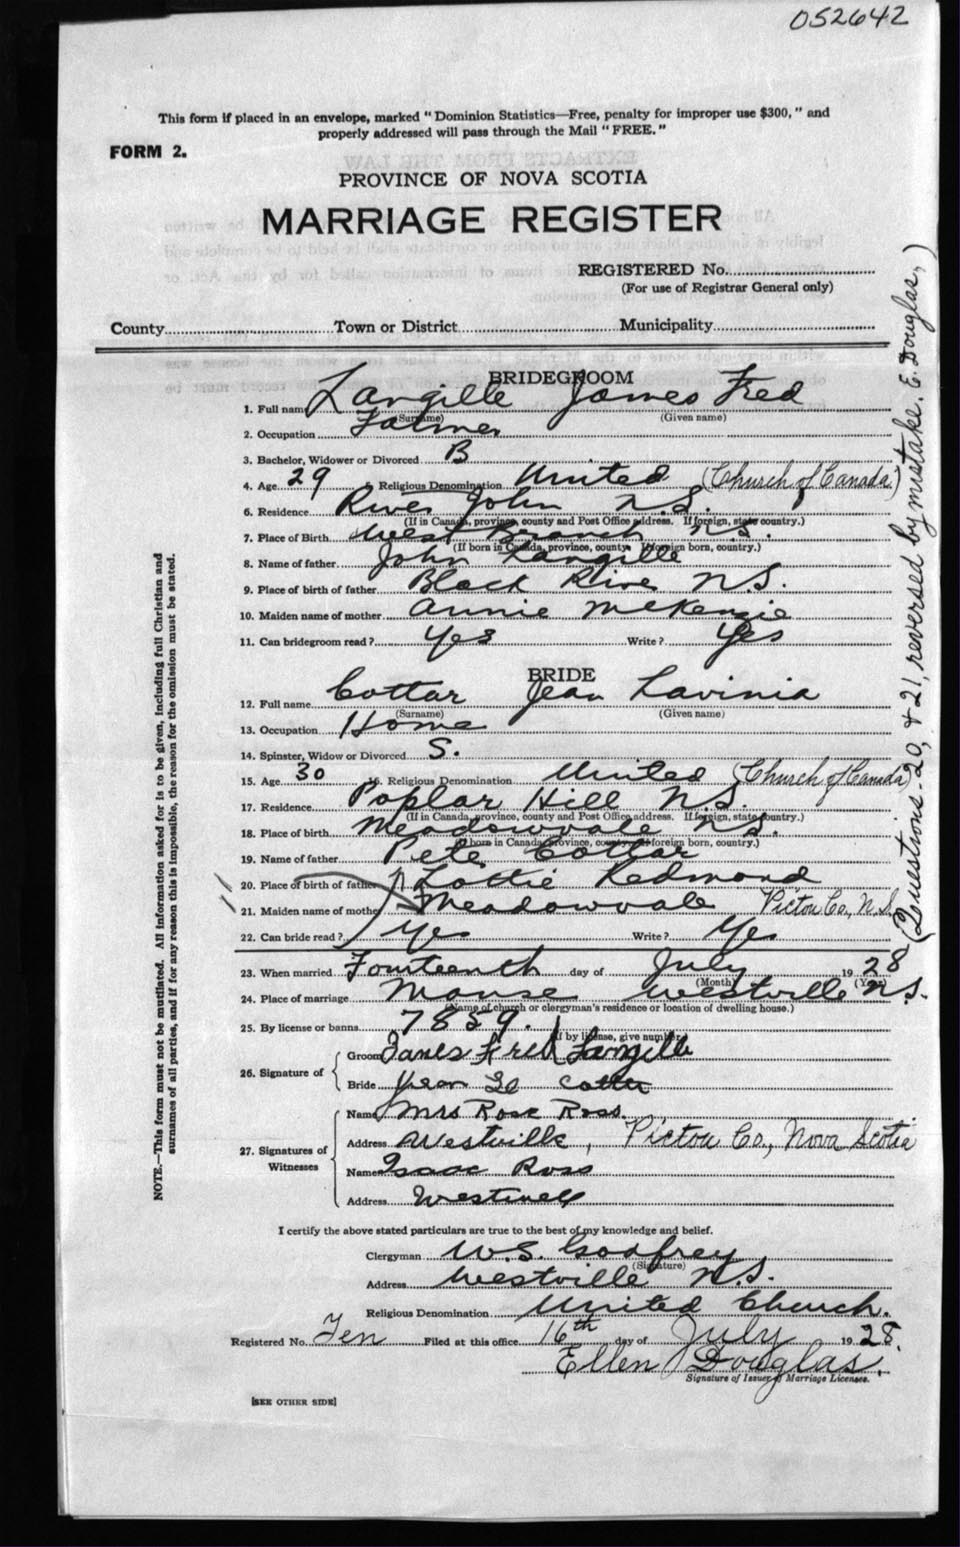 052642
This form if placed in an envelope, marked "Dominion Statistics—Free, penalty for improper use $300," and
properly addressed will pass through the Mail "FREE."
FORM 2.
PROVINCE OF NOVA SCOTIA
MARRIAGE REGISTER
REGISTERED No.
(For use of Registrar General only)
County Town or District Municipality
BRIDEGROOM
1. Full name Langille James Fred
(Surname) (Given name)
2. Occupation Farmer
3. Bachelor, Widower or Divorced B
4. Age 29 5. Religious Denomination United (Church of Canada)
6. Residence River John N.S.
(If in Canada, province, county and Post Office address. If foreign, state country.)
7. Place of Birth West Branch N.S.
(If born in Canada, province, county. If foreign born, country.)
8. Name of father John Langille
9. Place of birth of father Black River N.S.
10. Maiden name of mother Annie McKenzie
11. Can bridegroom read? Yes Write? Yes
BRIDE
12. Full name Cottar Jean Lavinia
(Surname) (Given name)
13. Occupation Home
14. Spinster, Widow or Divorced S.
15. Age 30 16. Religious Denomination United (Church of Canada)
17. Residence Poplar Hill N.S.
(If in Canada, province, county and Post Office address. If foreign, state country.)
18. Place of birth Meadowvale N.S.
(If born in Canada, province, county. If foreign born, country.)
19. Name of father Pete Cottar
20. Place of birth of father Lottie Redmond
21. Maiden name of mother Meadowvale Pictou Co., N.S.
22. Can bride read? Yes Write? Yes
23. When married Fourteenth day of July 1928
(Month) (Year)
24. Place of marriage Manse Westville N.S.
(Name of church or clergyman's residence or location of dwelling house.)
25. By license or banns 7859.
(If by license, give number)
26. Signature of
Groom James Fred Langille
Bride Jean Cotter
27. Signatures of Witnesses
Name Mrs Rose Ross.
Address Westville, Pictou Co., Nova Scotia
Name Isaac Ross
Address Westville
I certify the above stated particulars are true to the best of my knowledge and belief.
Clergyman W.S. Godfrey
(Signature)
Address Westville N.S.
Religious Denomination United Church.
Registered No. Ten Filed at this office 16th day of July 1928.
Ellen Douglas.
Signature of Issuer of Marriage Licenses.
[SEE OTHER SIDE]
NOTE.—This form must not be mutilated. All information asked for is to be given, including full Christian and
surnames of all parties, and if for any reason this is impossible, the reason for the omission must be stated.
(Questions - 20, & 21, reversed by mistake. E. Douglas,)